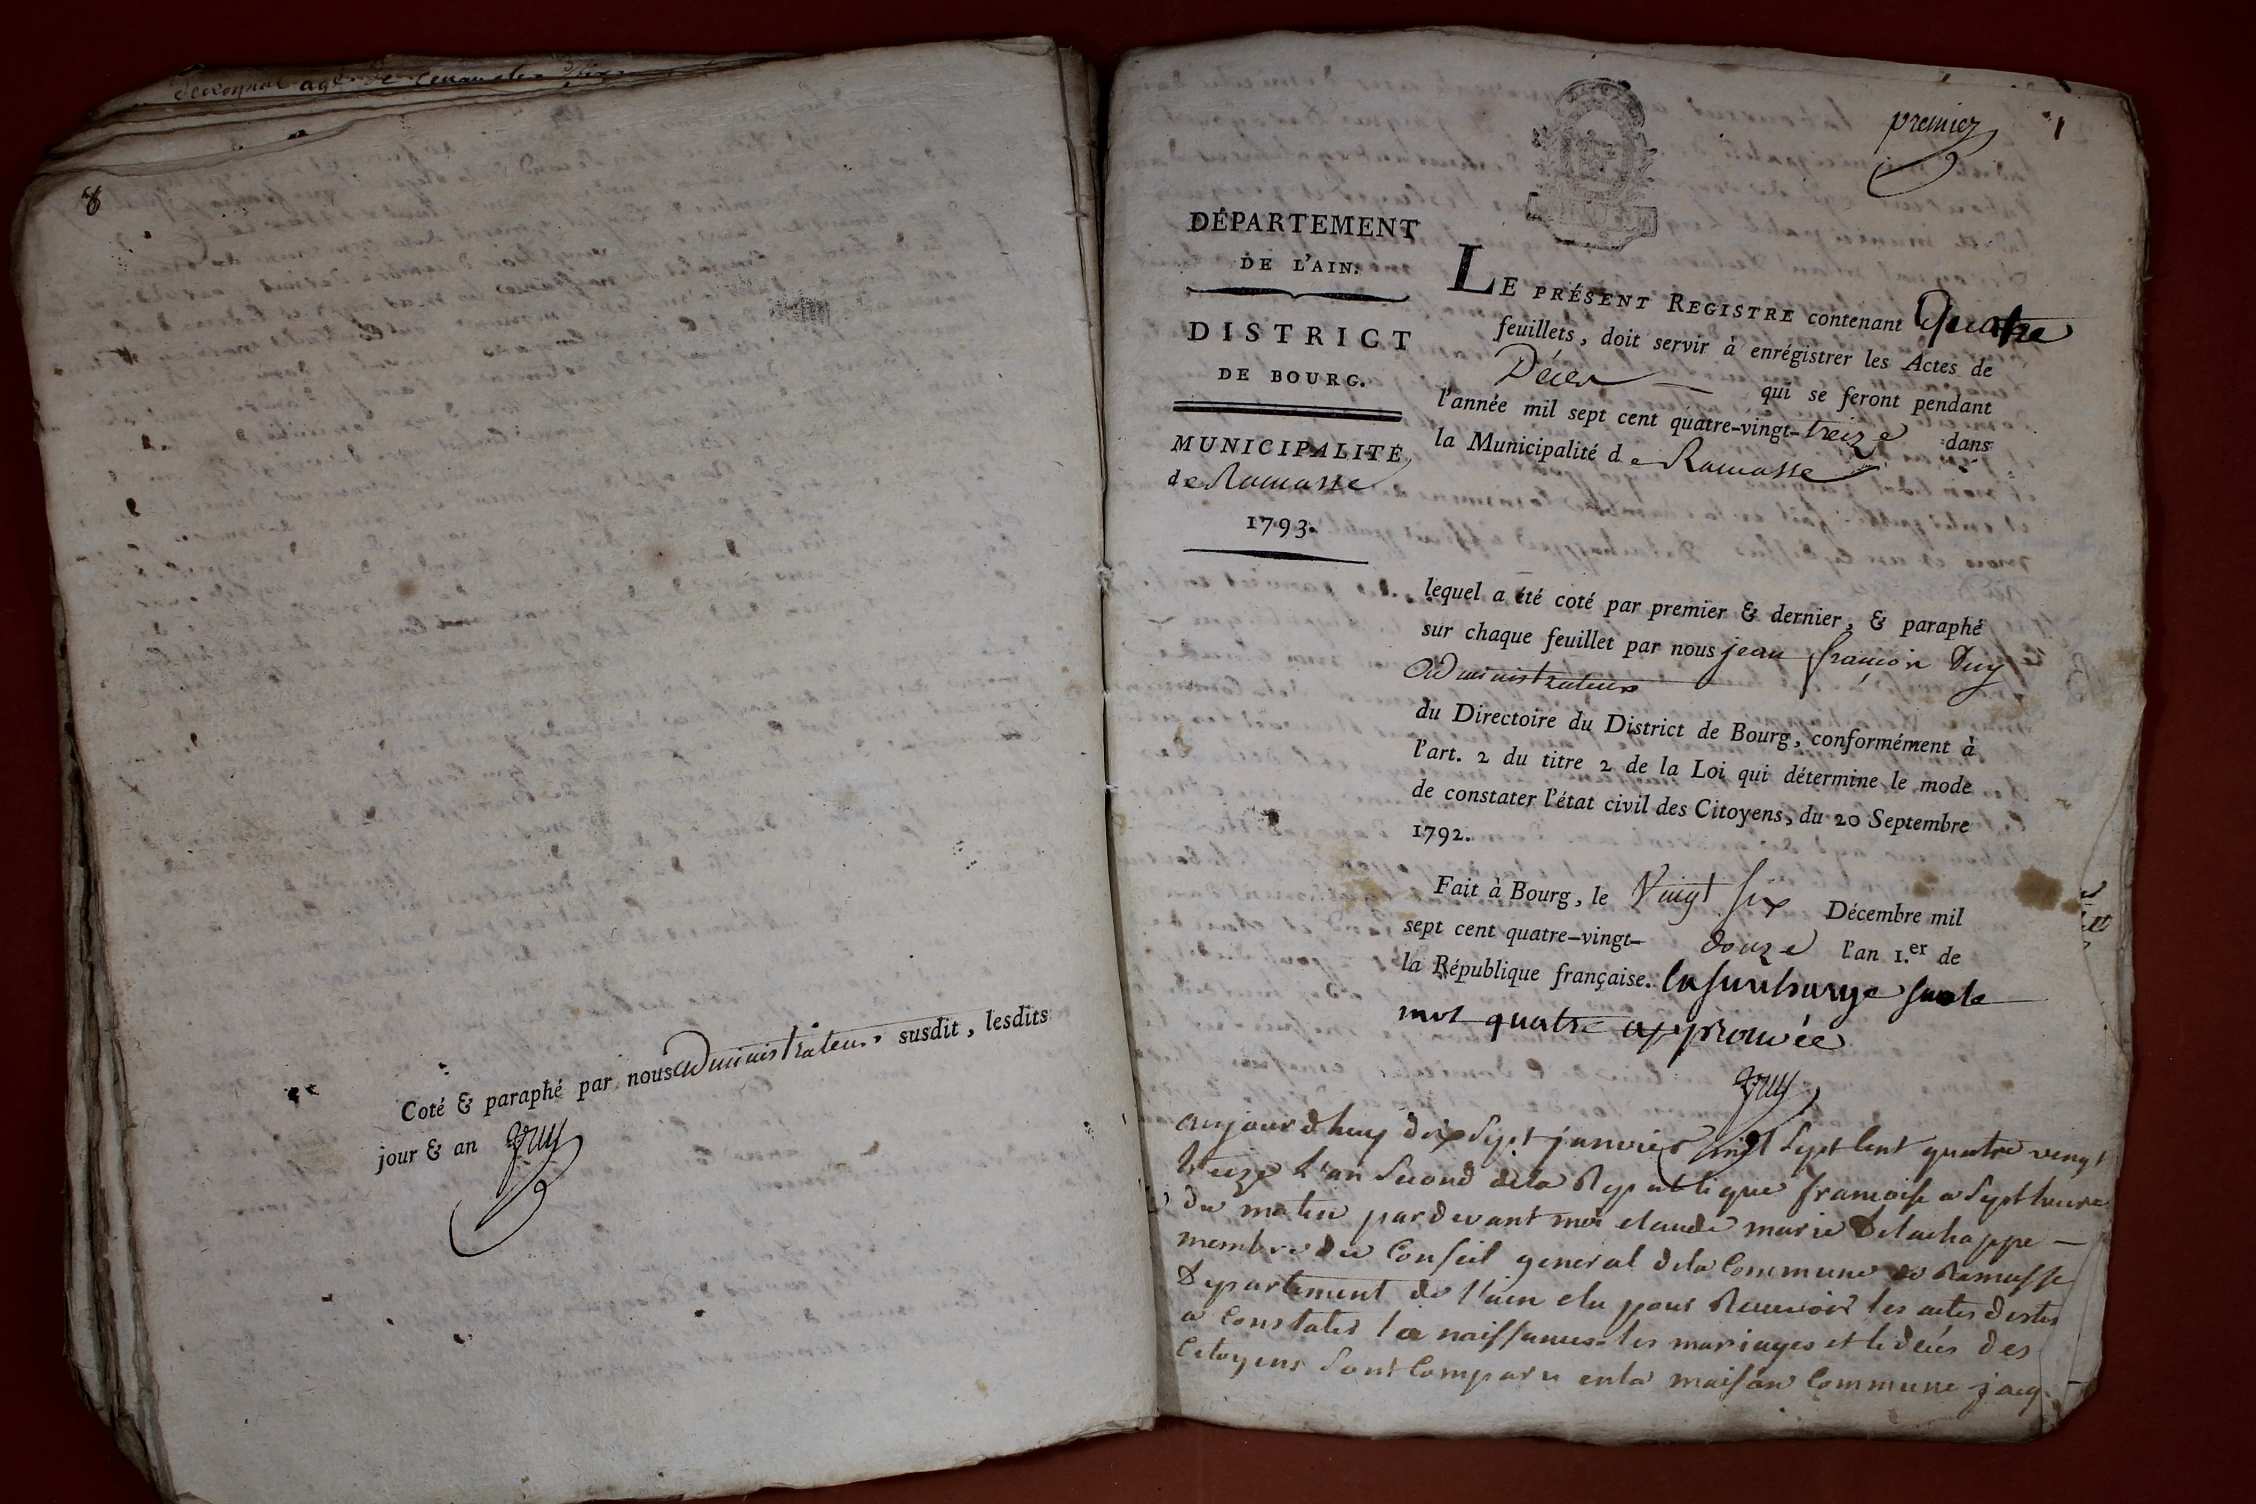 8
Coté & paraphé par nous administrateur susdit, lesdits
jour & an
premier
1
DÉPARTEMENT
DE L'AIN.
DISTRICT
DE BOURG.
MUNICIPALITÉ
de Ramasse
1793.
LE PRÉSENT REGISTRE contenant Quatre
feuillets, doit servir à enrégistrer les Actes de
Décès qui se feront pendant
l'année mil sept cent quatre-vingt-treize dans
la Municipalité de Ramasse
lequel a été coté par premier & dernier, & paraphé
sur chaque feuillet par nous jean françois
administrateur
du Directoire du District de Bourg, conformément à
l'art. 2 du titre 2 de la Loi qui détermine le mode
de constater l'état civil des Citoyens, du 20 Septembre
1792.
Fait à Bourg, le Vingt six Décembre mil
sept cent quatre-vingt-douze l'an 1.er de
la République française. la surcharge sur le
mot quatre approuvée
aujourdhuy dix sept janvier mil sept cent quatre vingt
treize l'an second dela Republique francoise a sept heure
du matin pardevant moi claude marie Delachappe
membre du Conseil general dela Commune de Ramasse
Departement de l'ain elu pour Recevoir les actes destes
a Constater la naissances les mariages et le décés des
Citoyens sont Comparu enla maison Commune jacq